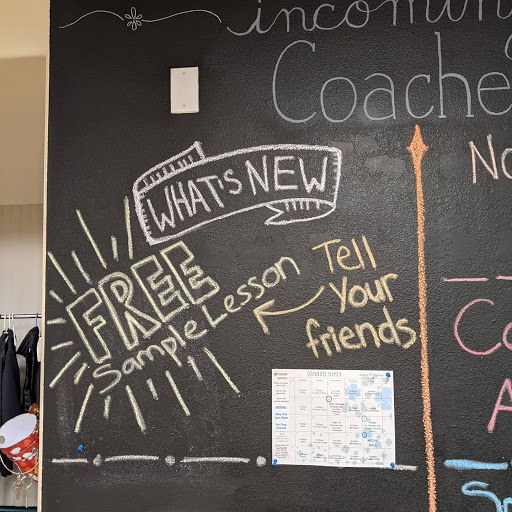 incomin
Coache
WHAT'S NEW
FREE
Sample Lesson
Tell
your
friends
No
Co
A